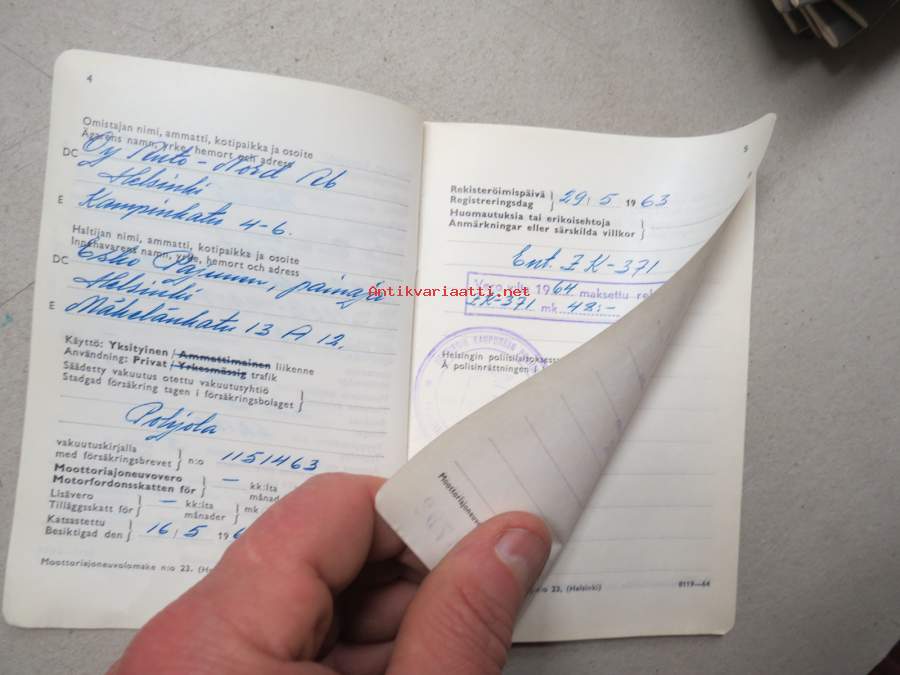 4
Omistajan nimi, ammatti, kotipaikka ja osoite
Ägarens namn, yrke, hemort och adress
DC Oy Auto-Nord Ab
Helsinki
E Kampinkatu 4-6.
Haltijan nimi, ammatti, kotipaikka ja osoite
Innehavarens namn, yrke, hemort och adress
DC Esko Pajunen, painaja
Helsinki
E Mäkelänkatu 13 A 12.
Käyttö: Yksityinen / Ammattimainen liikenne
Användning: Privat / Yrkesmässig trafik
Säädetty vakuutus otettu vakuutusyhtiö
Stadgad försäkring tagen i försäkringsbolaget
Pohjola
vakuutuskirjalla
med försäkringsbrevet n:o 1151463
Moottoriajoneuvovero
Motorfordonsskatten för — kk:lta
månad
Lisävero
Tilläggsskatt för — kk:lta mk
månader
Katsastettu
Besiktigad den 16 / 5 196
Moottoriajoneuvolomake n:o 23. (H
5
Rekisteröimispäivä
Registreringsdag 29 / 5 1963
Huomautuksia tai erikoisehtoja
Anmärkningar eller särskilda villkor
Ent. ZK-371
1964 maksettu
ZK-371 mk 42:-
Helsingin poliisilaitoksessa
Å polisinrättningen i
Moottoriajoneuvo
n:o 23, (Helsinki)
8119—64
Antikvariaatti.net